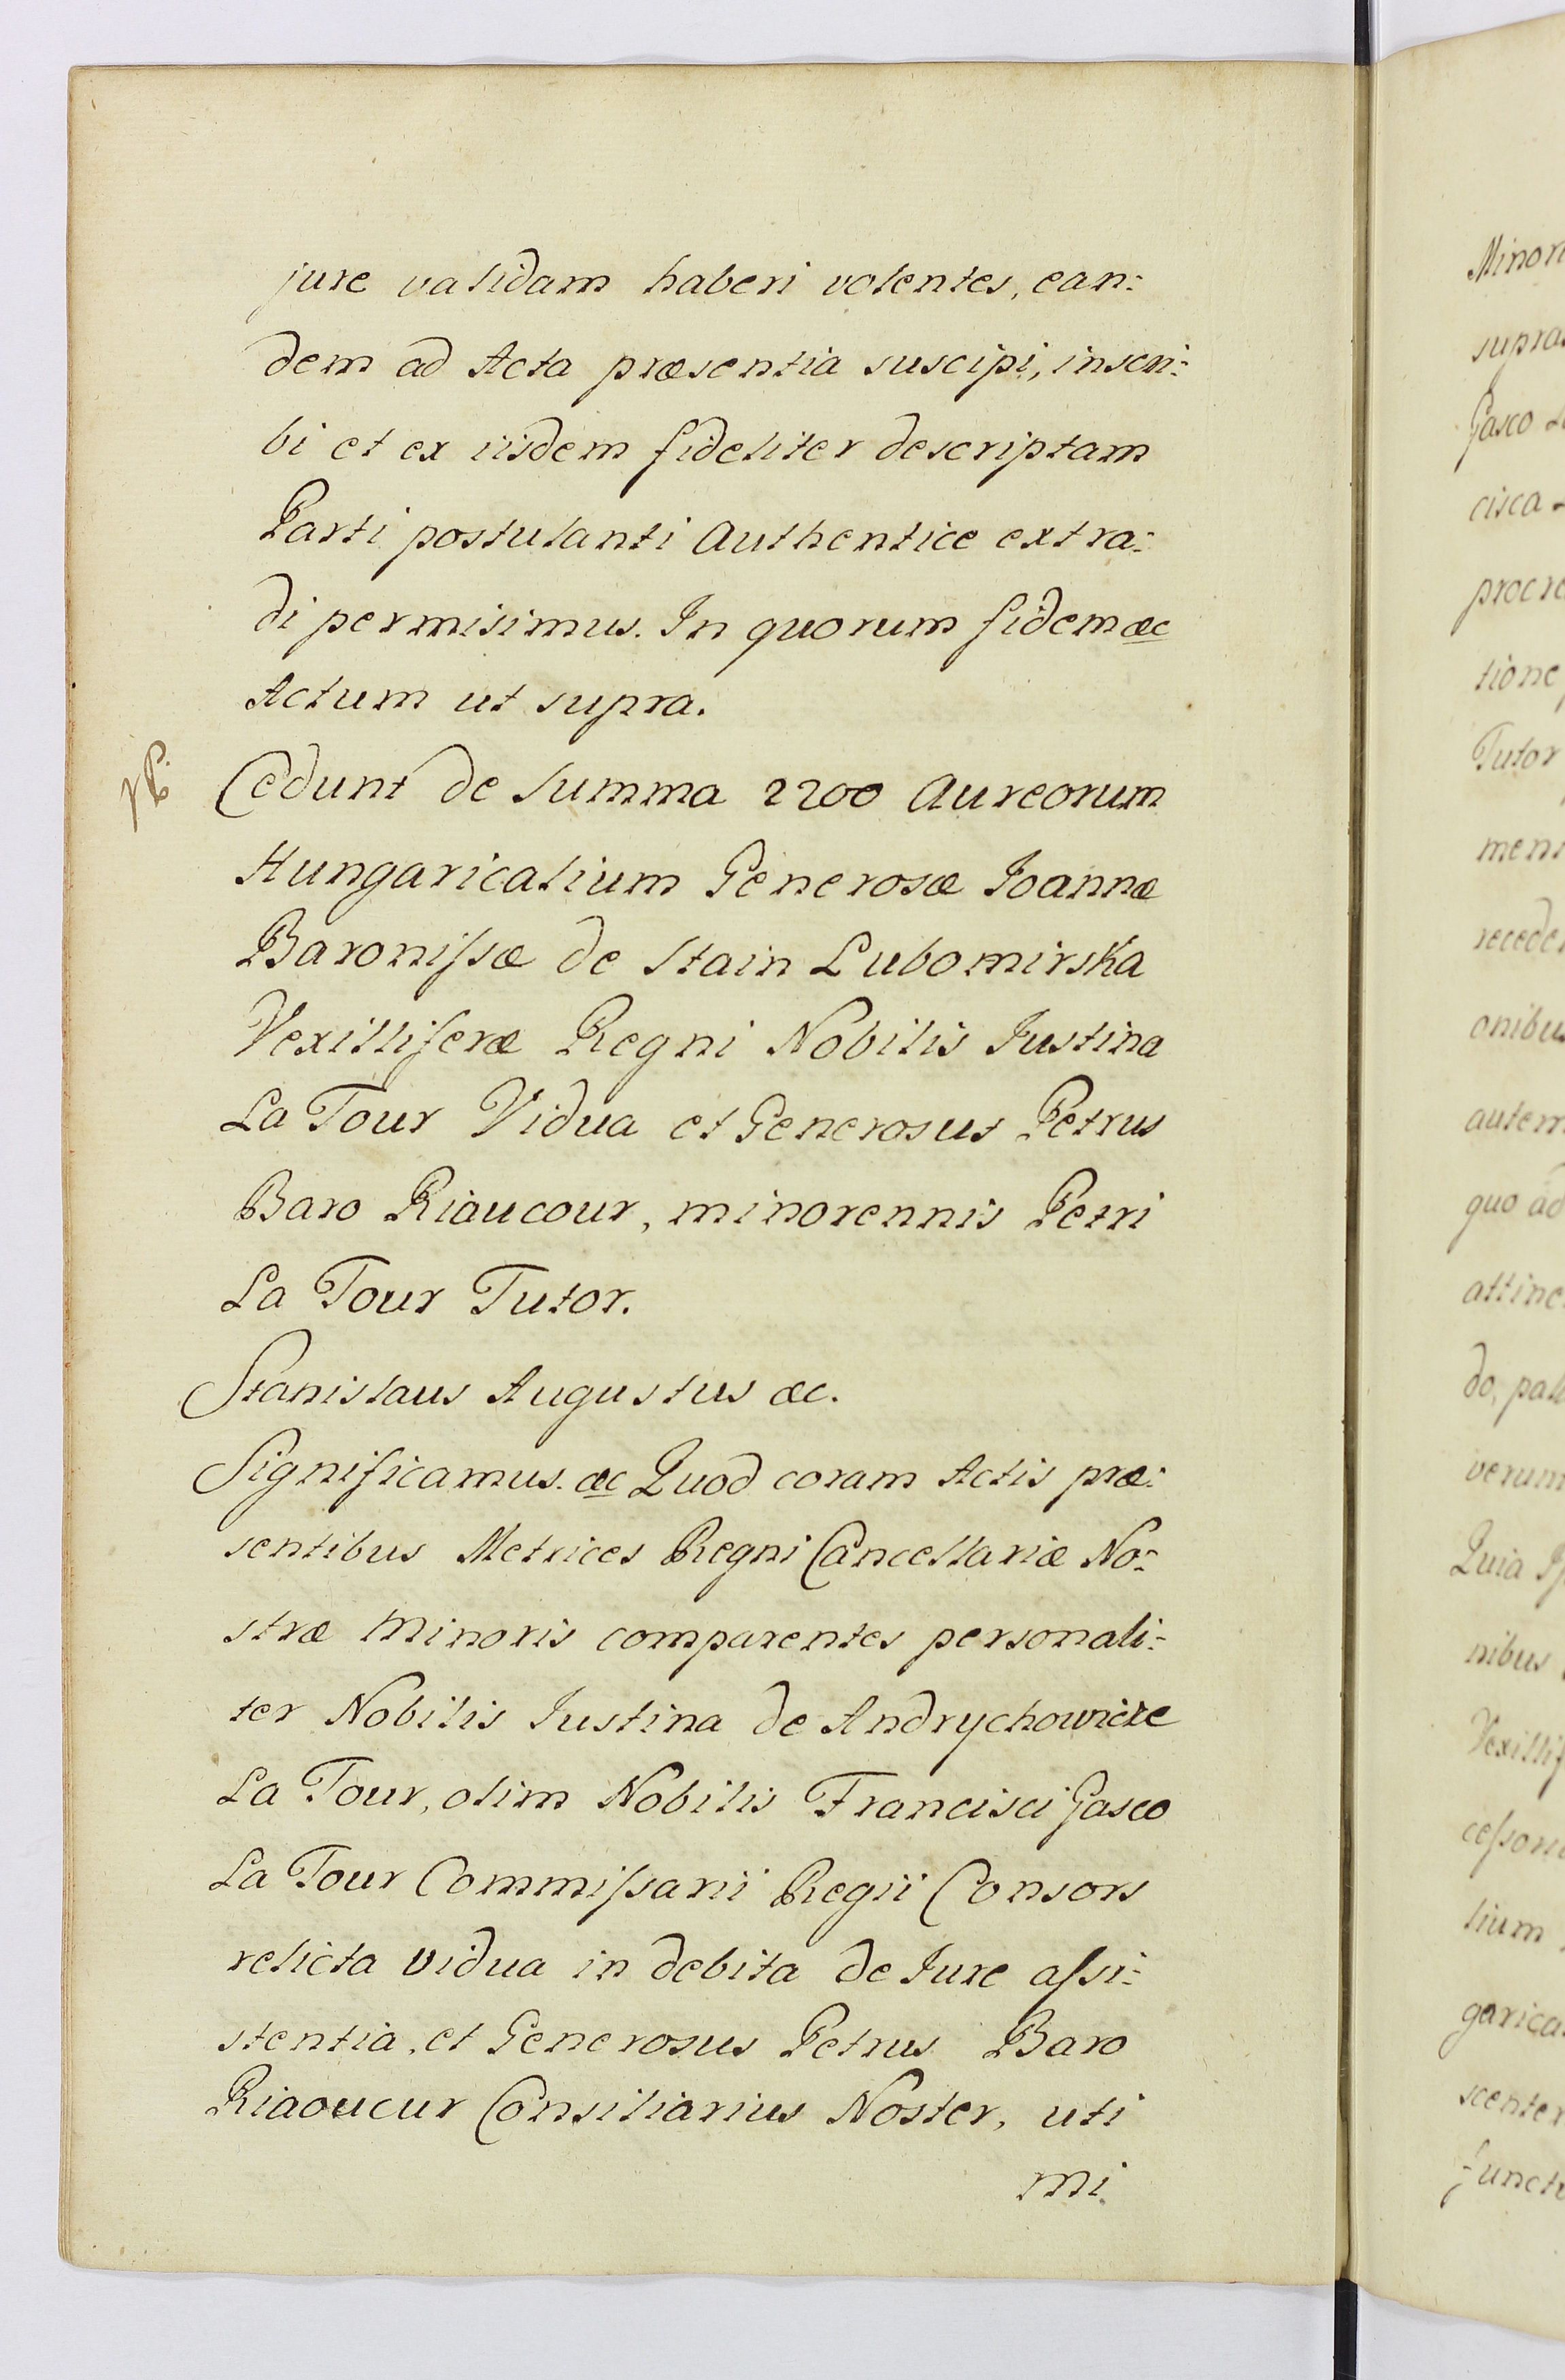 jure validam haberi volentes, ean:
dem ad Acta præsentia suscipi, inscri:
bi et ex iisdem fideliter descriptam
Parti postulanti Authentice extra:
di permisimus. In quorum fidem æc
Actum ut supra.
Cedunt de Summa 2200 Aureorum
Hungaricalium Generosæ Joannæ
Baronissæ de Stain Lubomirska
Vexilliferæ Regni Nobilis Justina
La Tour Vidua et Generosus Petrus
Baro Riaucour, minorennis Petri
La Tour Tutor.
Stanislaus Augustus æc.
Significamus. æc Quod coram Actis præ:
sentibus Metrices Regni Cancellariæ No:
stræ Minoris comparentes personali:
ter Nobilis Justina de Andrychowicze
La Tour, olim Nobilis Francisci Gasco
La Tour Commissarii Regii Consors
relicta vidua in debita de Jure assi:
stentia, et Generosus Petrus Baro
Riaoucur Consiliarius Noster, uti
mi
Minor
supra
Gasco
cisca
procre
tione
Tutor
men
recede
onibu
autem
quo ad
attine
do, pal
verum
Quia
nibus
Vexillif
cessori
lium
garica
scenter
funct